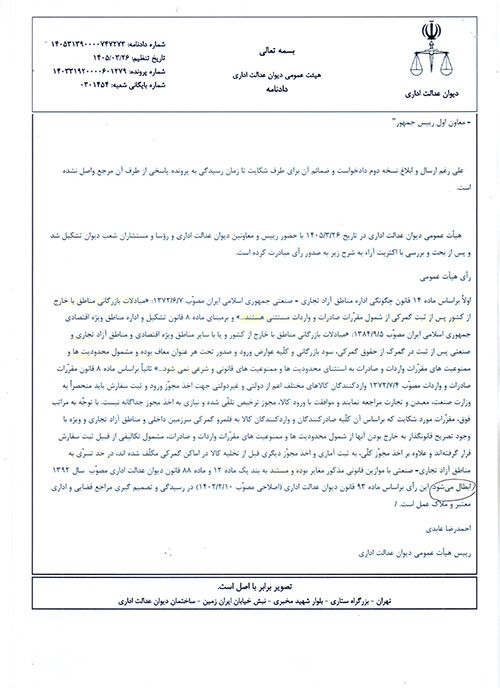 بسمه تعالی
هیئت عمومی دیوان عدالت اداری
دادنامه
شماره دادنامه: ۱۴۰۵۳۱۳۹۰۰۰۰۷۴۷۲۷۳
تاریخ تنظیم: ۱۴۰۵/۰۳/۲۶
شماره پرونده: ۱۴۰۳۳۱۹۲۰۰۰۰۶۰۱۲۷۹
شماره بایگانی شعبه: ۰۳۰۱۴۵۴
دیوان عدالت اداری
- معاون اول رییس جمهور"
علی رغم ارسال و ابلاغ نسخه دوم دادخواست و ضمائم آن برای طرف شکایت تا زمان رسیدگی به پرونده پاسخی از طرف آن مرجع واصل نشده
است.
هیأت عمومی دیوان عدالت اداری در تاریخ ۱۴۰۵/۳/۲۶ با حضور رییس و معاونین دیوان عدالت اداری و رؤسا و مستشاران شعب دیوان تشکیل شد
و پس از بحث و بررسی با اکثریت آراء به شرح زیر به صدور رأی مبادرت کرده است.
رأی هیأت عمومی
اولاً براساس ماده ۱۴ قانون چگونگی اداره مناطق آزاد تجاری - صنعتی جمهوری اسلامی ایران مصوّب ۱۳۷۲/۶/۷: «مبادلات بازرگانی مناطق با خارج
از کشور پس از ثبت گمرکی از شمول مقرّرات صادرات و واردات مستثنی هستند...» و برمبنای ماده ۸ قانون تشکیل و اداره مناطق ویژه اقتصادی
جمهوری اسلامی ایران مصوّب ۱۳۸۴/۹/۵: «مبادلات بازرگانی مناطق با خارج از کشور و یا با سایر مناطق ویژه اقتصادی و مناطق آزاد تجاری و
صنعتی پس از ثبت در گمرک از حقوق گمرکی، سود بازرگانی و کلّیه عوارض ورود و صدور تحت هر عنوان معاف بوده و مشمول محدودیت ها و
ممنوعیت های مقرّرات واردات و صادرات به استثنای محدودیت ها و ممنوعیت های قانونی و شرعی نمی شود...» ثانیاً براساس ماده ۸ قانون مقررات
صادرات و واردات مصوّب ۱۳۷۲/۷/۴ واردکنندگان کالاهای مختلف اعم از دولتی و غیردولتی جهت اخذ مجوّز ورود و ثبت سفارش باید منحصراً به
وزارت صنعت، معدن و تجارت مراجعه نمایند و موافقت با ورود کالا، مجوّز ترخیص تلقّی شده و نیازی به اخذ مجوز جداگانه نیست. با توجّه به مراتب
فوق، مقرّرات مورد شکایت که براساس آن کلّیه صادرکنندگان و واردکنندگان کالا به قلمرو گمرکی سرزمین داخلی و مناطق آزاد تجاری و ویژه با
وجود تصریح قانونگذار به خارج بودن آنها از شمول محدودیت ها و ممنوعیت های مقرّرات واردات و صادرات، مشمول تکالیفی از قبیل ثبت سفارش
قرار گرفته‌اند و علاوه بر اخذ مجوّز کلّی، به ثبت آماری و اخذ مجوّز دیگری قبل از تخلیه کالا در اماکن گمرکی مکلّف شده اند، در حد تسرّی به
مناطق آزاد تجاری- صنعتی با موازین قانونی مذکور مغایر بوده و مستند به بند یک ماده ۱۲ و ماده ۸۸ قانون دیوان عدالت اداری مصوّب سال ۱۳۹۲
ابطال می‌شود. این رأی براساس ماده ۹۳ قانون دیوان عدالت اداری (اصلاحی مصوّب ۱۴۰۲/۲/۱۰) در رسیدگی و تصمیم گیری مراجع قضایی و اداری
معتبر و ملاک عمل است. /
احمدرضا عابدی
رییس هیأت عمومی دیوان عدالت اداری
تصویر برابر با اصل است.
تهران - بزرگراه ستاری - بلوار شهید مخبری - نبش خیابان ایران زمین - ساختمان دیوان عدالت اداری